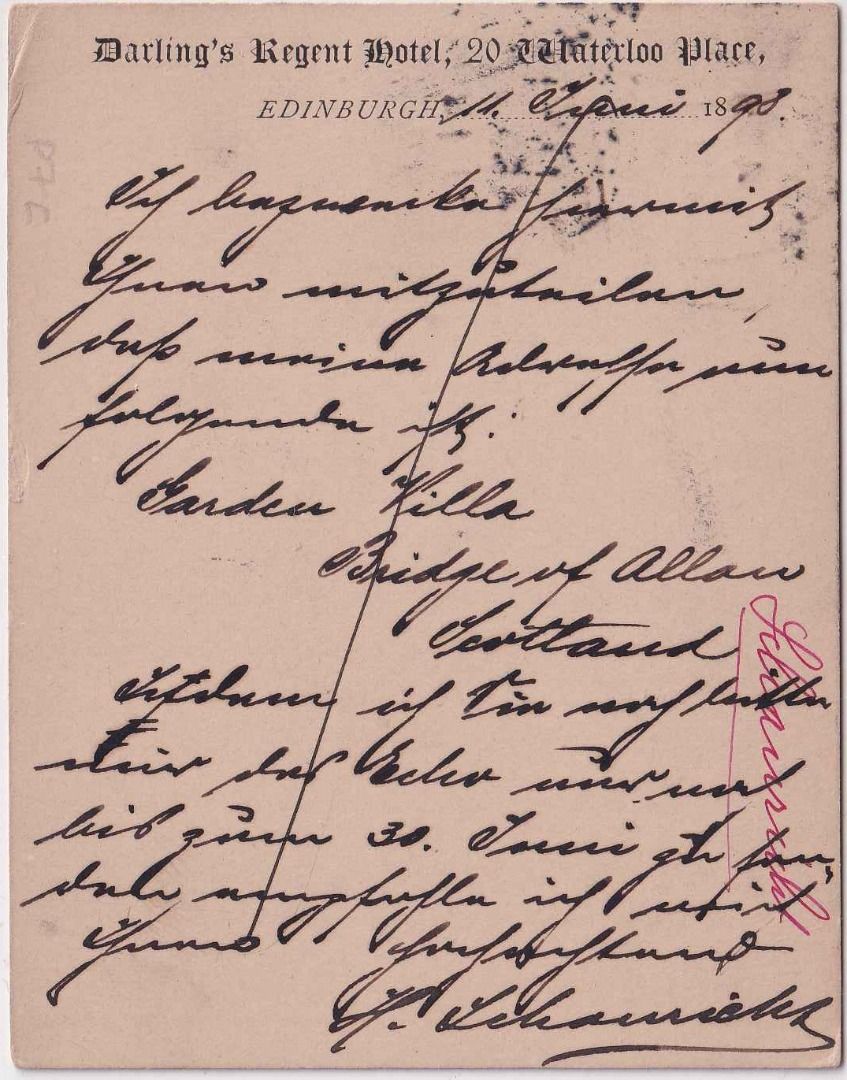 Darling's Regent Hotel, 20 Waterloo Place,
EDINBURGH, 11. Juni 1898.
Ich bezwecke hiermit
Ihnen mitzuteilen,
daß meine Adresse nun
folgende ist:
Garden Villa
Bridge of Allan
Scotland
Indem ich Sie noch bitte
mir das Echo nur noch
bis zum 30. Juni zu sen-
den empfehle ich mich
Ihnen hochachtend
H. Schanricht